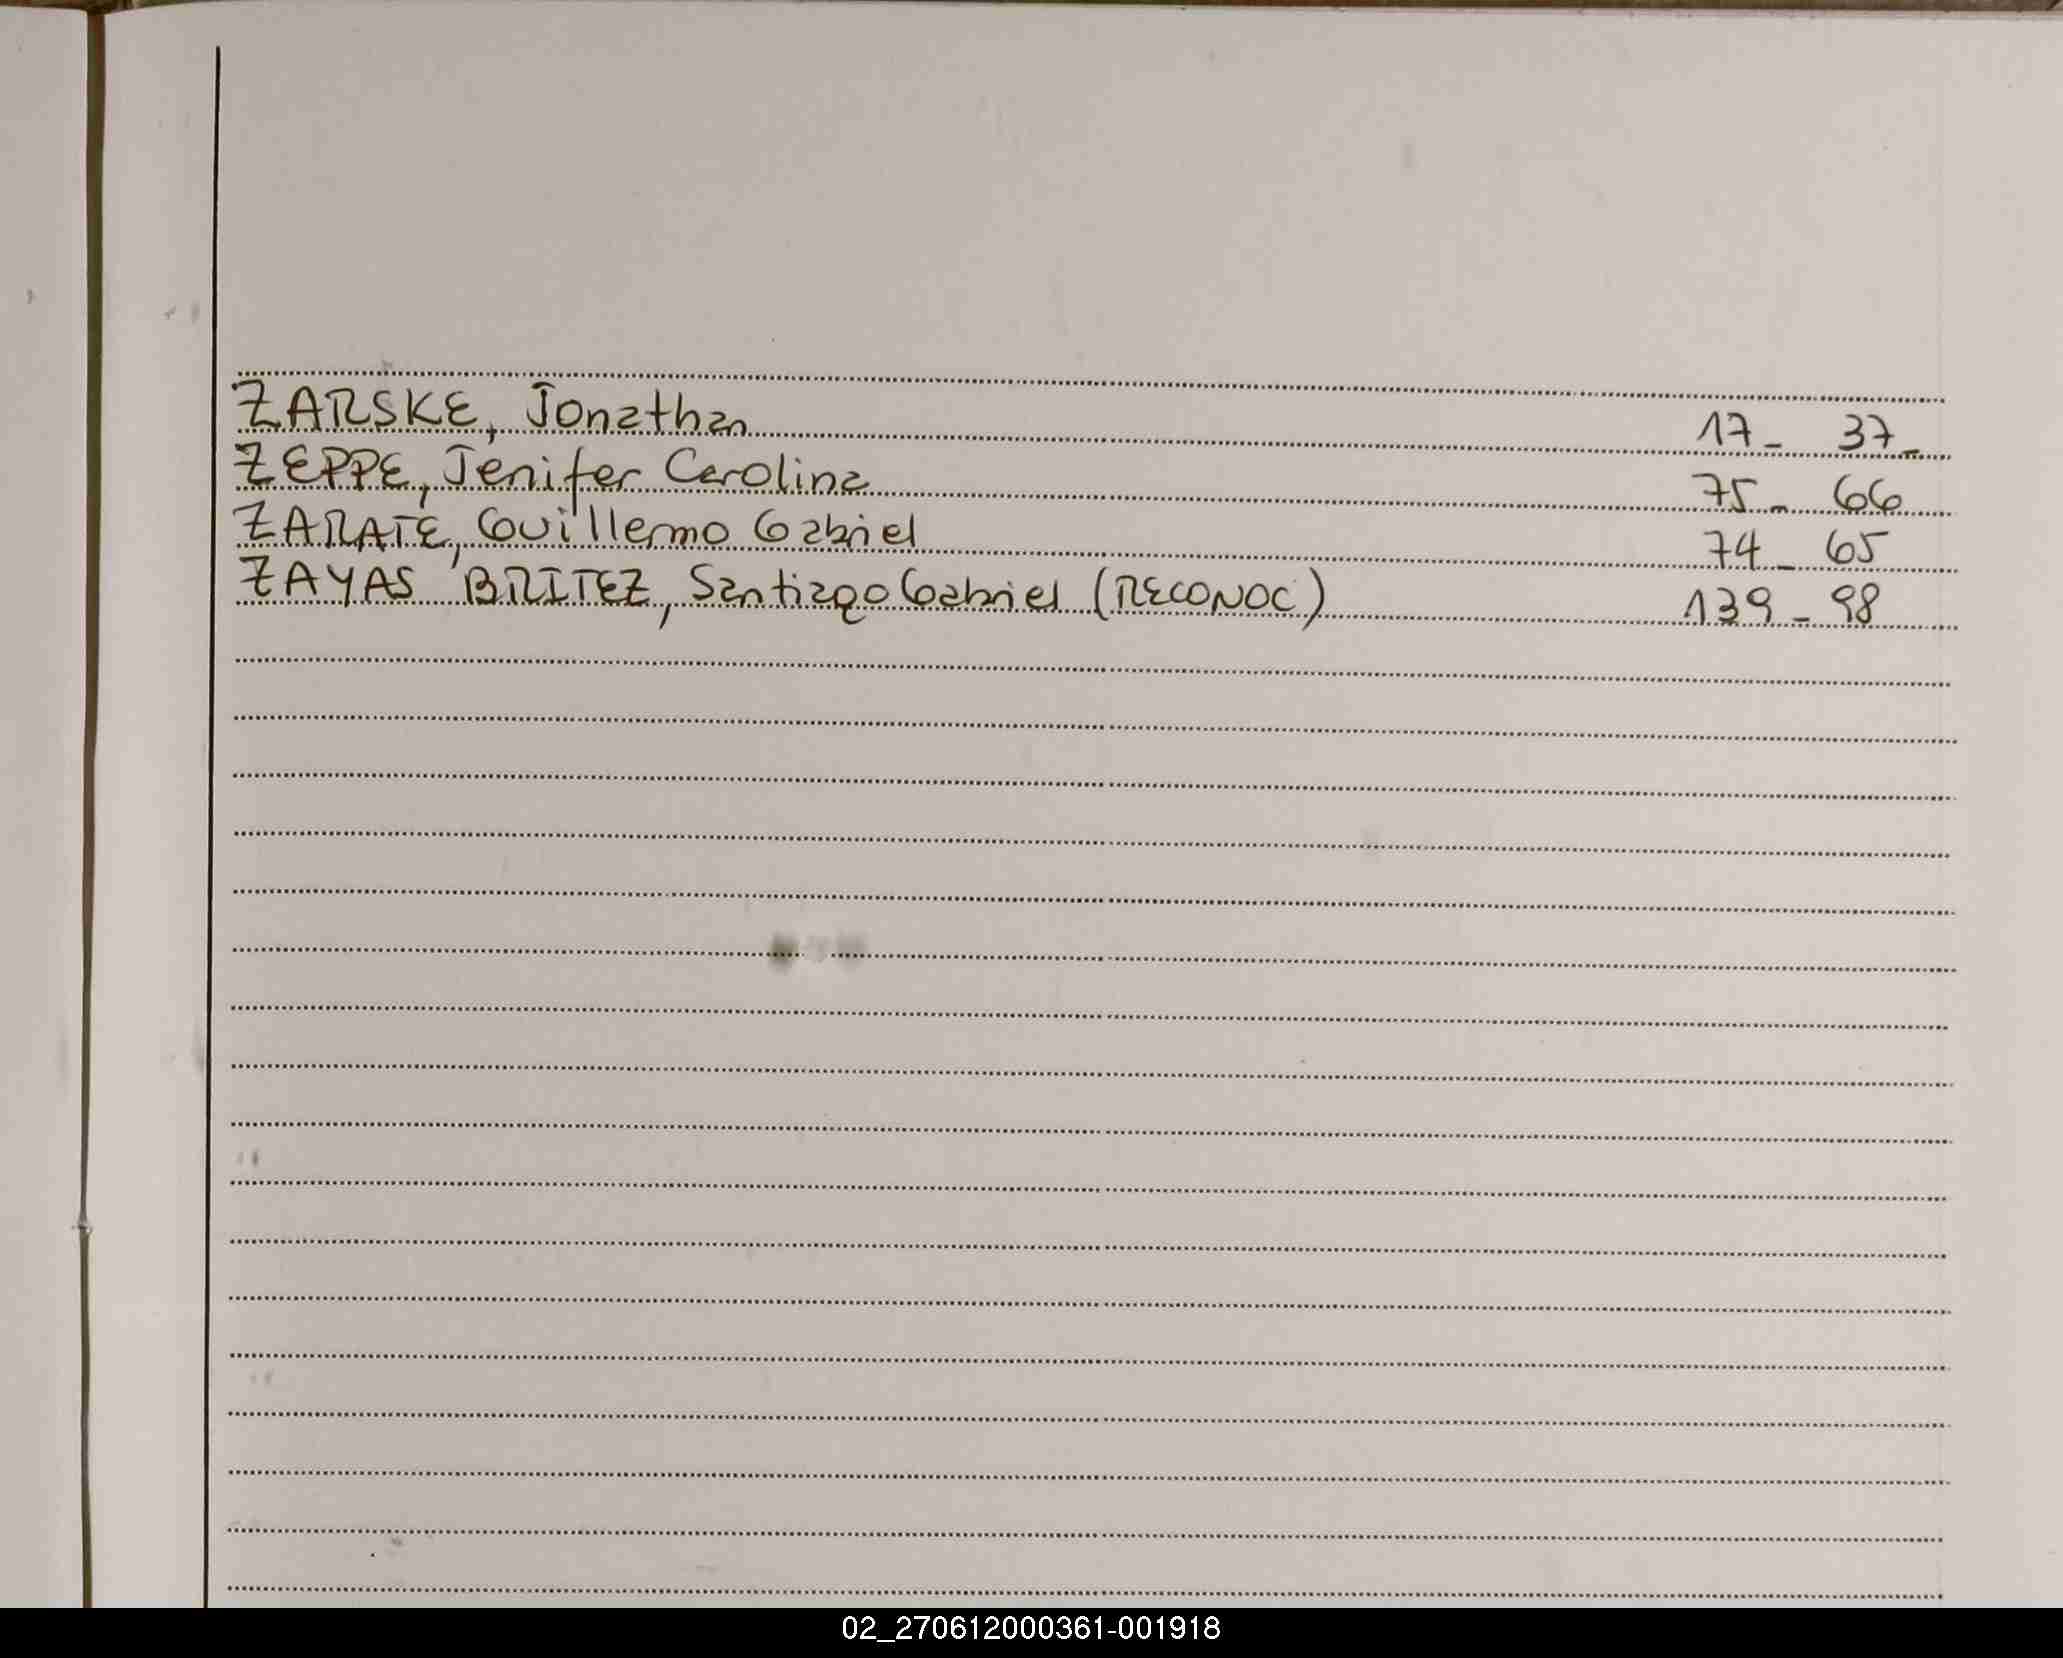 ZARSKE, Jonathan 17- 37-
ZEPPE, Jenifer Carolina 75- 66
ZARATE, Guillermo Gabriel 74- 65
ZAYAS BRITEZ, Santiago Gabriel (RECONOC) 139- 98
02_270612000361-001918